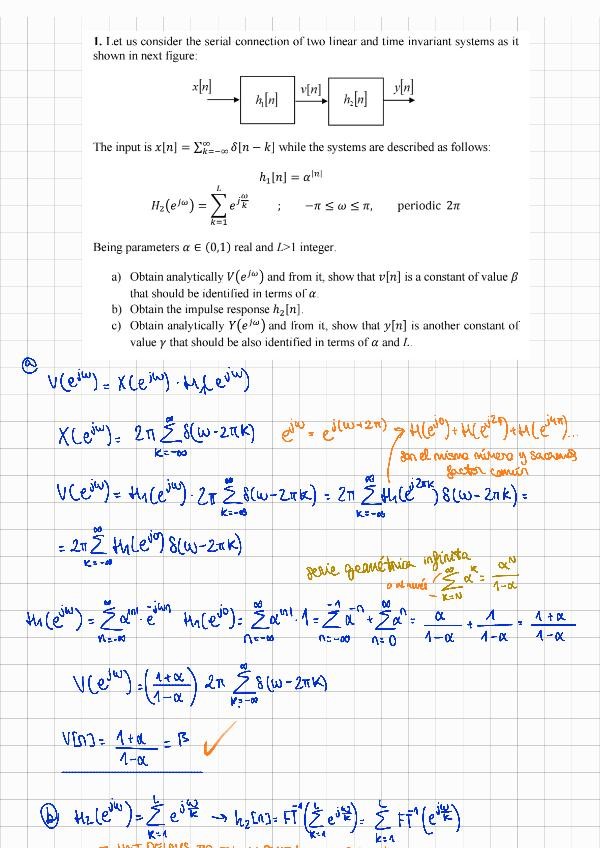 1. Let us consider the serial connection of two linear and time invariant systems as it
shown in next figure:
x[n] h₁[n] v[n] h₂[n] y[n]
The input is x[n] = ∑_{k=-∞}^{∞} δ[n − k] while the systems are described as follows:
h₁[n] = α^{|n|}
H₂(e^{jω}) = ∑_{k=1}^{L} e^{jω/k} ; −π ≤ ω ≤ π, periodic 2π
Being parameters α ∈ (0,1) real and L>1 integer.
a) Obtain analytically V(e^{jω}) and from it, show that v[n] is a constant of value β
that should be identified in terms of α.
b) Obtain the impulse response h₂[n].
c) Obtain analytically Y(e^{jω}) and from it, show that y[n] is another constant of
value γ that should be also identified in terms of α and L.
ⓐ
V(e^{jω}) = X(e^{jω}) · H₁(e^{jω})
X(e^{jω}) = 2π ∑_{k=-∞}^{∞} δ(ω−2πk) e^{jω} = e^{j(ω+2π)} → H(e^{j0}) + H(e^{j2π}) + H(e^{j4π})...
son el mismo número y sacamos
factor común
V(e^{jω}) = H₁(e^{jω}) · 2π ∑_{k=-∞}^{∞} δ(ω−2πk) = 2π ∑_{k=-∞}^{∞} H₁(e^{j2πk}) δ(ω−2πk) =
= 2π ∑_{k=-∞}^{∞} H₁(e^{j0}) δ(ω−2πk)
serie geométrica infinita
∑_{k=N}^{∞} α^k = α^N/(1−α)
H₁(e^{jω}) = ∑_{n=-∞}^{∞} α^{|n|} · e^{-jωn} H₁(e^{j0}) = ∑_{n=-∞}^{∞} α^{|n|} · 1 = ∑_{n=-∞}^{-1} α^{-n} + ∑_{n=0}^{∞} α^n = α/(1−α) + 1/(1−α) = (1+α)/(1−α)
V(e^{jω}) = ((1+α)/(1−α)) 2π ∑_{k=-∞}^{∞} δ(ω−2πk)
V[n] = (1+α)/(1−α) = β ✓
ⓑ H₂(e^{jω}) = ∑_{k=1}^{L} e^{jω/k} → h₂[n] = FT⁻¹(∑_{k=1}^{L} e^{jω/k}) = ∑_{k=1}^{L} FT⁻¹(e^{jω/k})